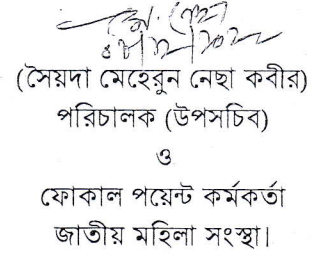 (সৈয়দা মেহেরুন নেছা কবীর)
পরিচালক (উপসচিব)
ও
ফোকাল পয়েন্ট কর্মকর্তা
জাতীয় মহিলা সংস্থা।